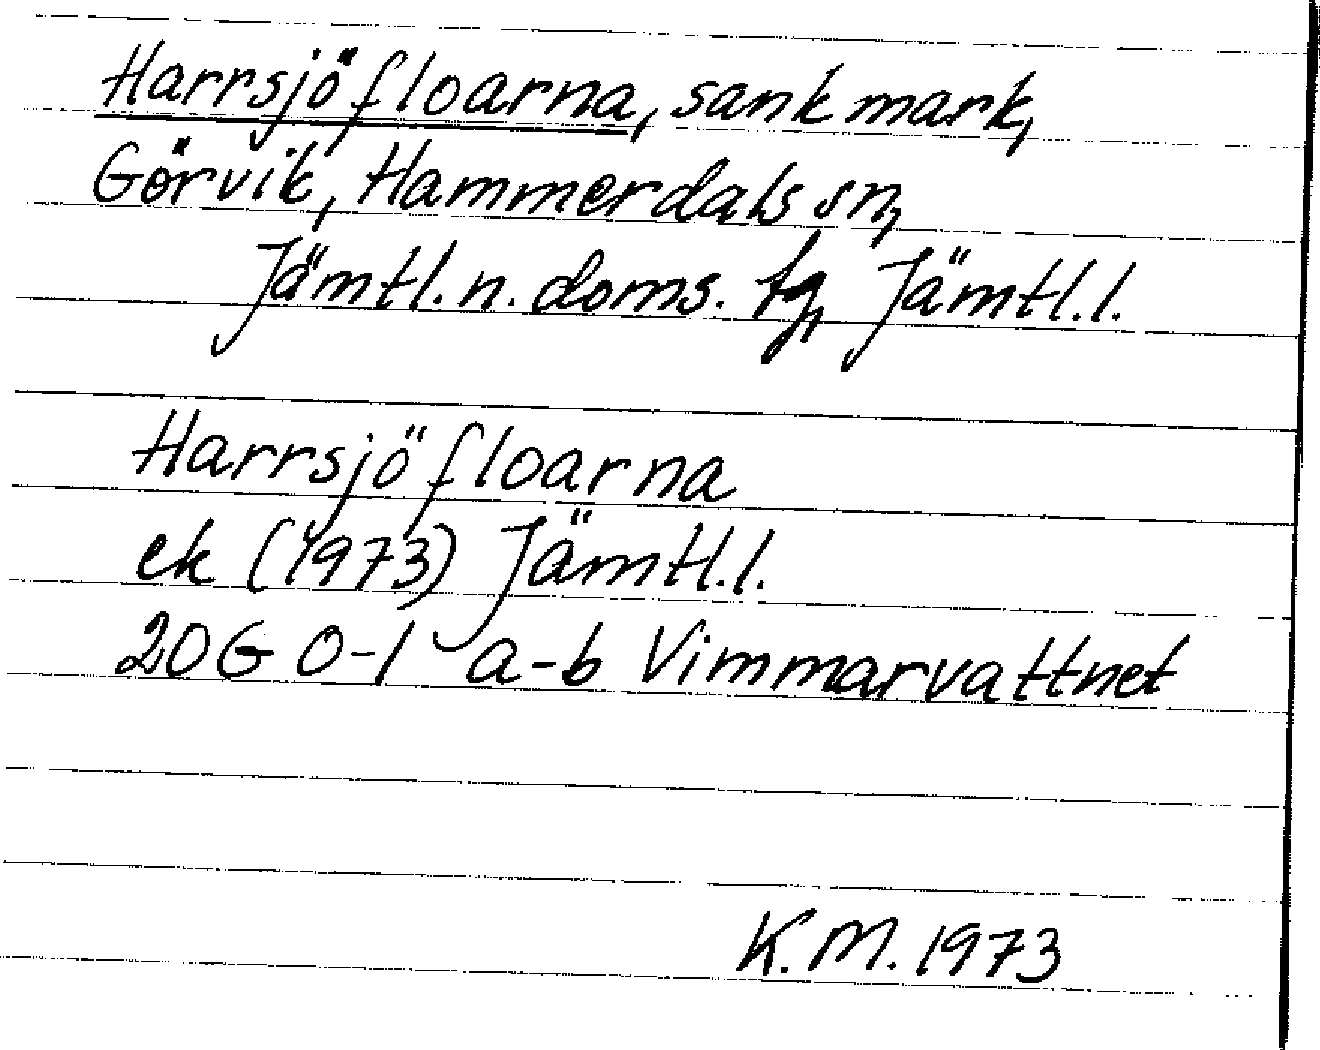 Harrsjöfloarna, sank mark,
Görvik, Hammerdals sn,
Jämtl. n. doms. tg, Jämtl. l.
Harrsjöfloarna
ek (1973) Jämtl. l.
20G 0-1 a-b Vimmarvattnet
K.M. 1973